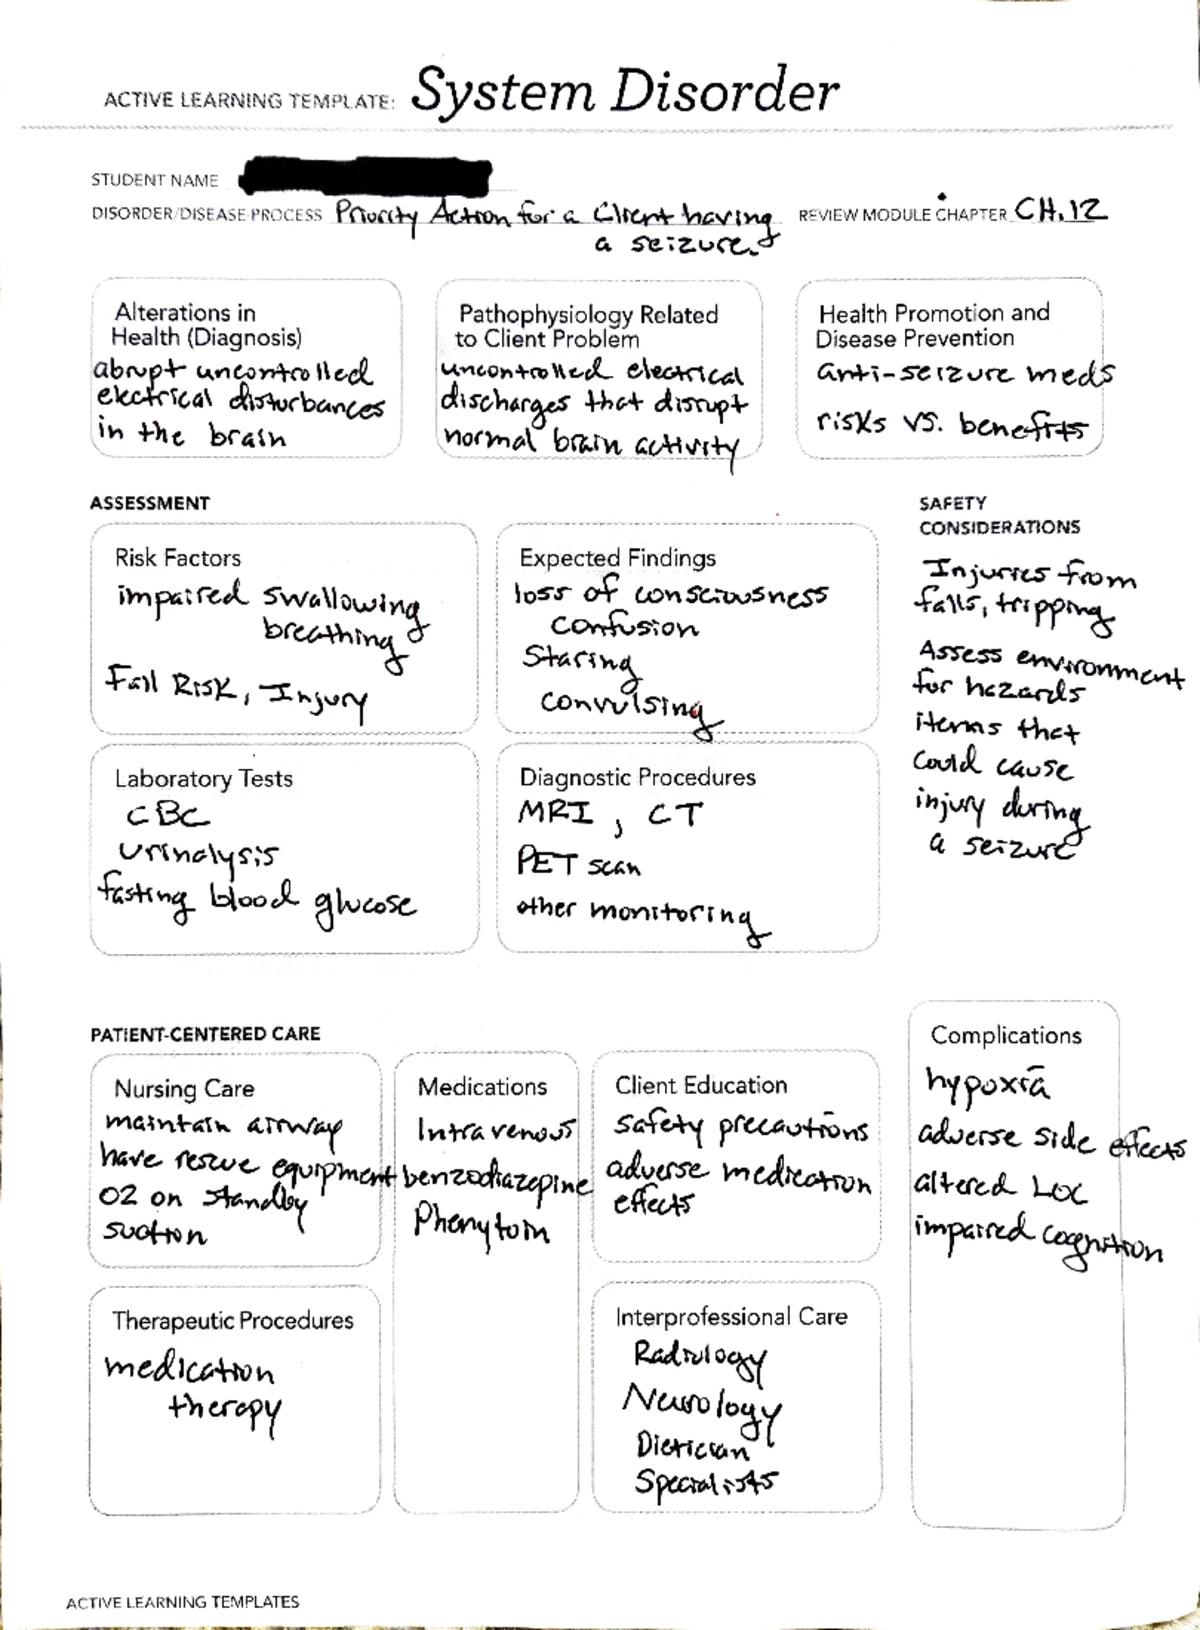 ACTIVE LEARNING TEMPLATE: System Disorder
STUDENT NAME
DISORDER/DISEASE PROCESS Priority Action for a Client having
a seizure.
REVIEW MODULE CHAPTER CH.12
Alterations in
Health (Diagnosis)
abrupt uncontrolled
electrical disturbances
in the brain
Pathophysiology Related
to Client Problem
uncontrolled electrical
discharges that disrupt
normal brain activity
Health Promotion and
Disease Prevention
anti-seizure meds
risks vs. benefits
ASSESSMENT
Risk Factors
impaired swallowing
breathing
Fall Risk, Injury
Expected Findings
loss of consciousness
confusion
Staring
convulsing
Laboratory Tests
CBC
urinalysis
fasting blood glucose
Diagnostic Procedures
MRI, CT
PET scan
other monitoring
SAFETY
CONSIDERATIONS
Injuries from
falls, tripping
Assess environment
for hazards
items that
could cause
injury during
a seizure
PATIENT-CENTERED CARE
Nursing Care
maintain airway
have rescue equipment
O2 on standby
suction
Medications
Intravenous
benzodiazepine
Phenytoin
Client Education
safety precautions
adverse medication
effects
Therapeutic Procedures
medication
therapy
Interprofessional Care
Radiology
Neurology
Dietician
Specialists
Complications
hypoxia
adverse side effects
altered LOC
impaired cognition
ACTIVE LEARNING TEMPLATES